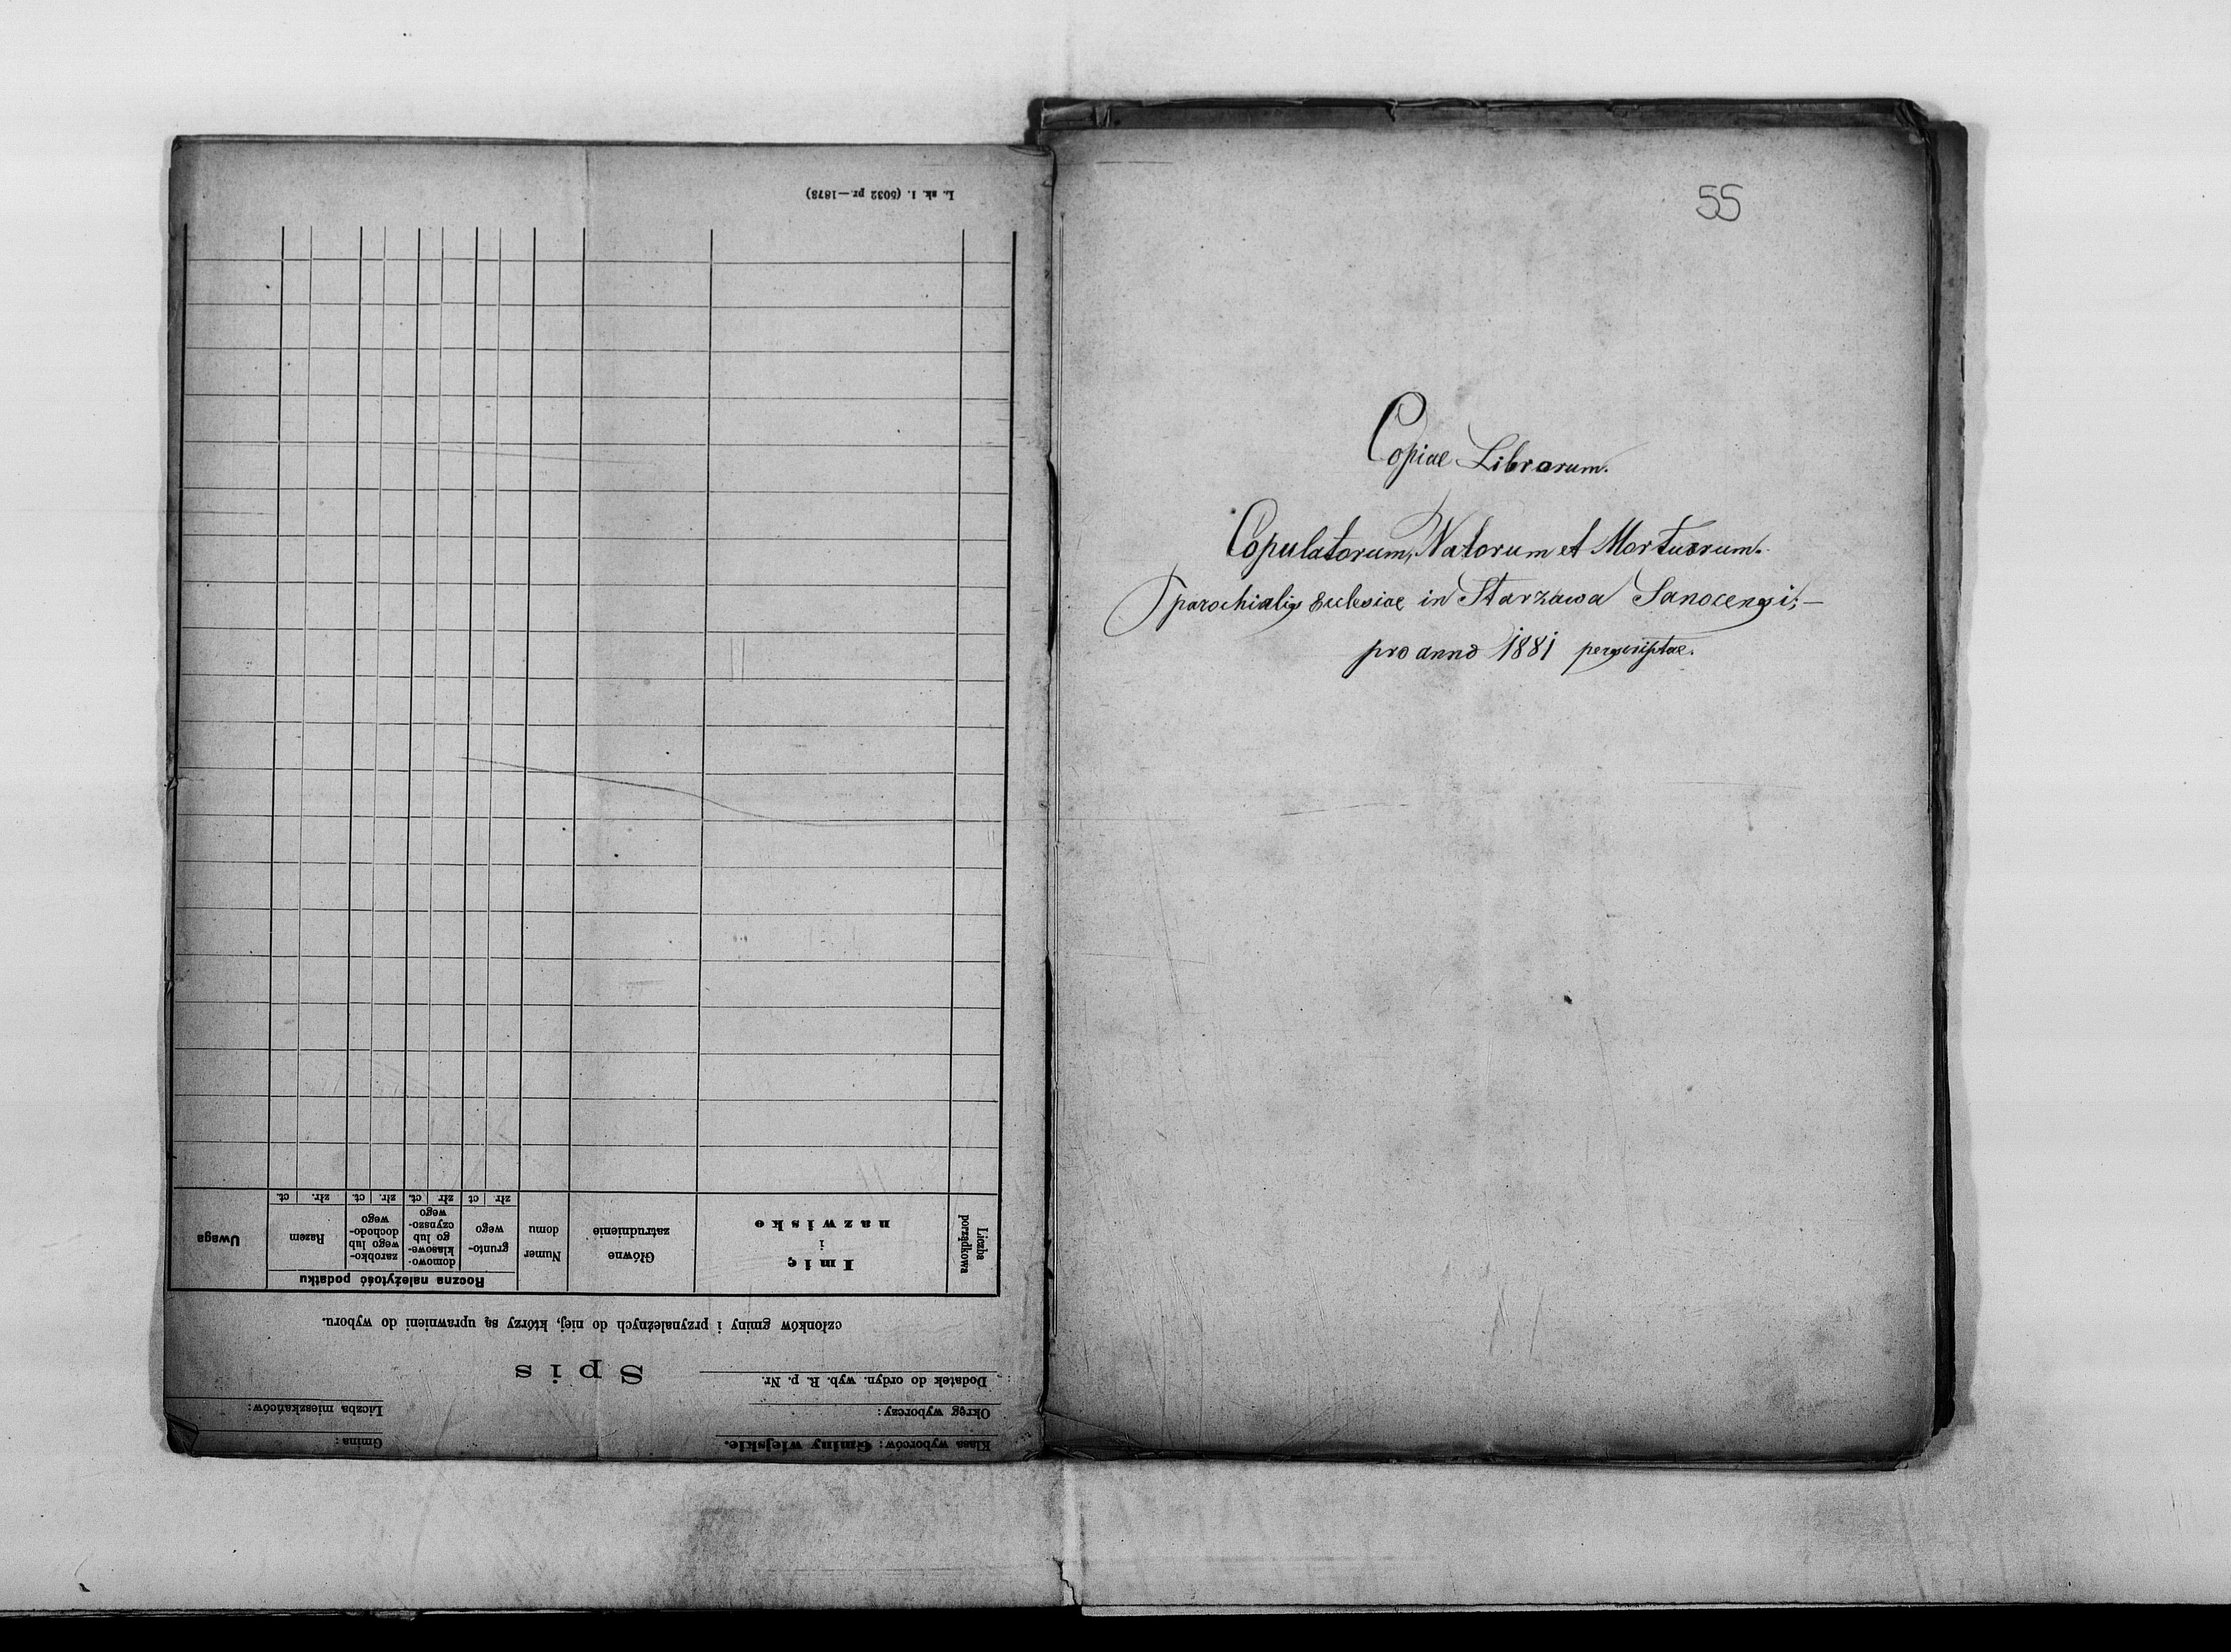 Klasa wyborców: Gminy wiejskie.
Gmina:
Okręg wyborczy:
Liczba mieszkańców:
Dodatek do ordyn. wyb. R. p. Nr.
Spis
członków gminy i przynależnych do niej, którzy są uprawnieni do wyboru.
Liczba porządkowa
Imię
i
nazwisko
Główne
zatrudnienie
Numer
domu
Roczna należytość podatku
grunto-
wego
domowo-
klasowe-
go lub
czynszo-
wego
zarobko-
wego lub
dochodo-
wego
Razem
Uwaga
złr ct złr ct. złr. ct. złr. ct.
L. sk. 1. (5032 pr.—1878)
55
Copiae Librorum.
Copulatorum, Natorum et Mortuorum.
parochialis Eclesiae in Starzawa Sanocensi;—
pro anno 1881 perscriptae.